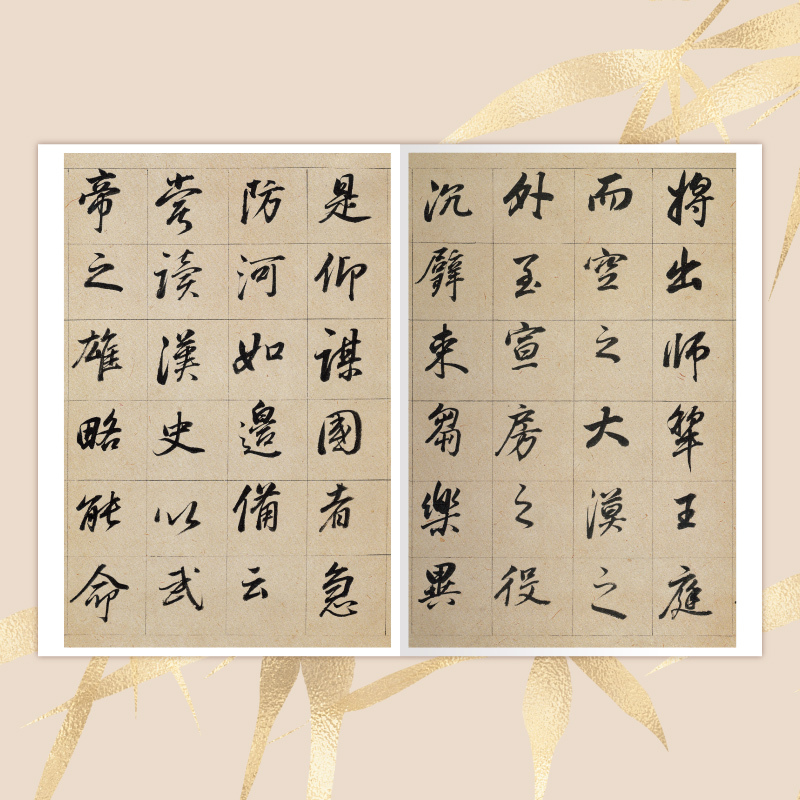 是仰謀國者急
防河如邊備云
嘗讀漢史以武
帝之雄略能命
將出師犂王庭
而空之大漠之
外至宣房之役
沉璧束芻樂異